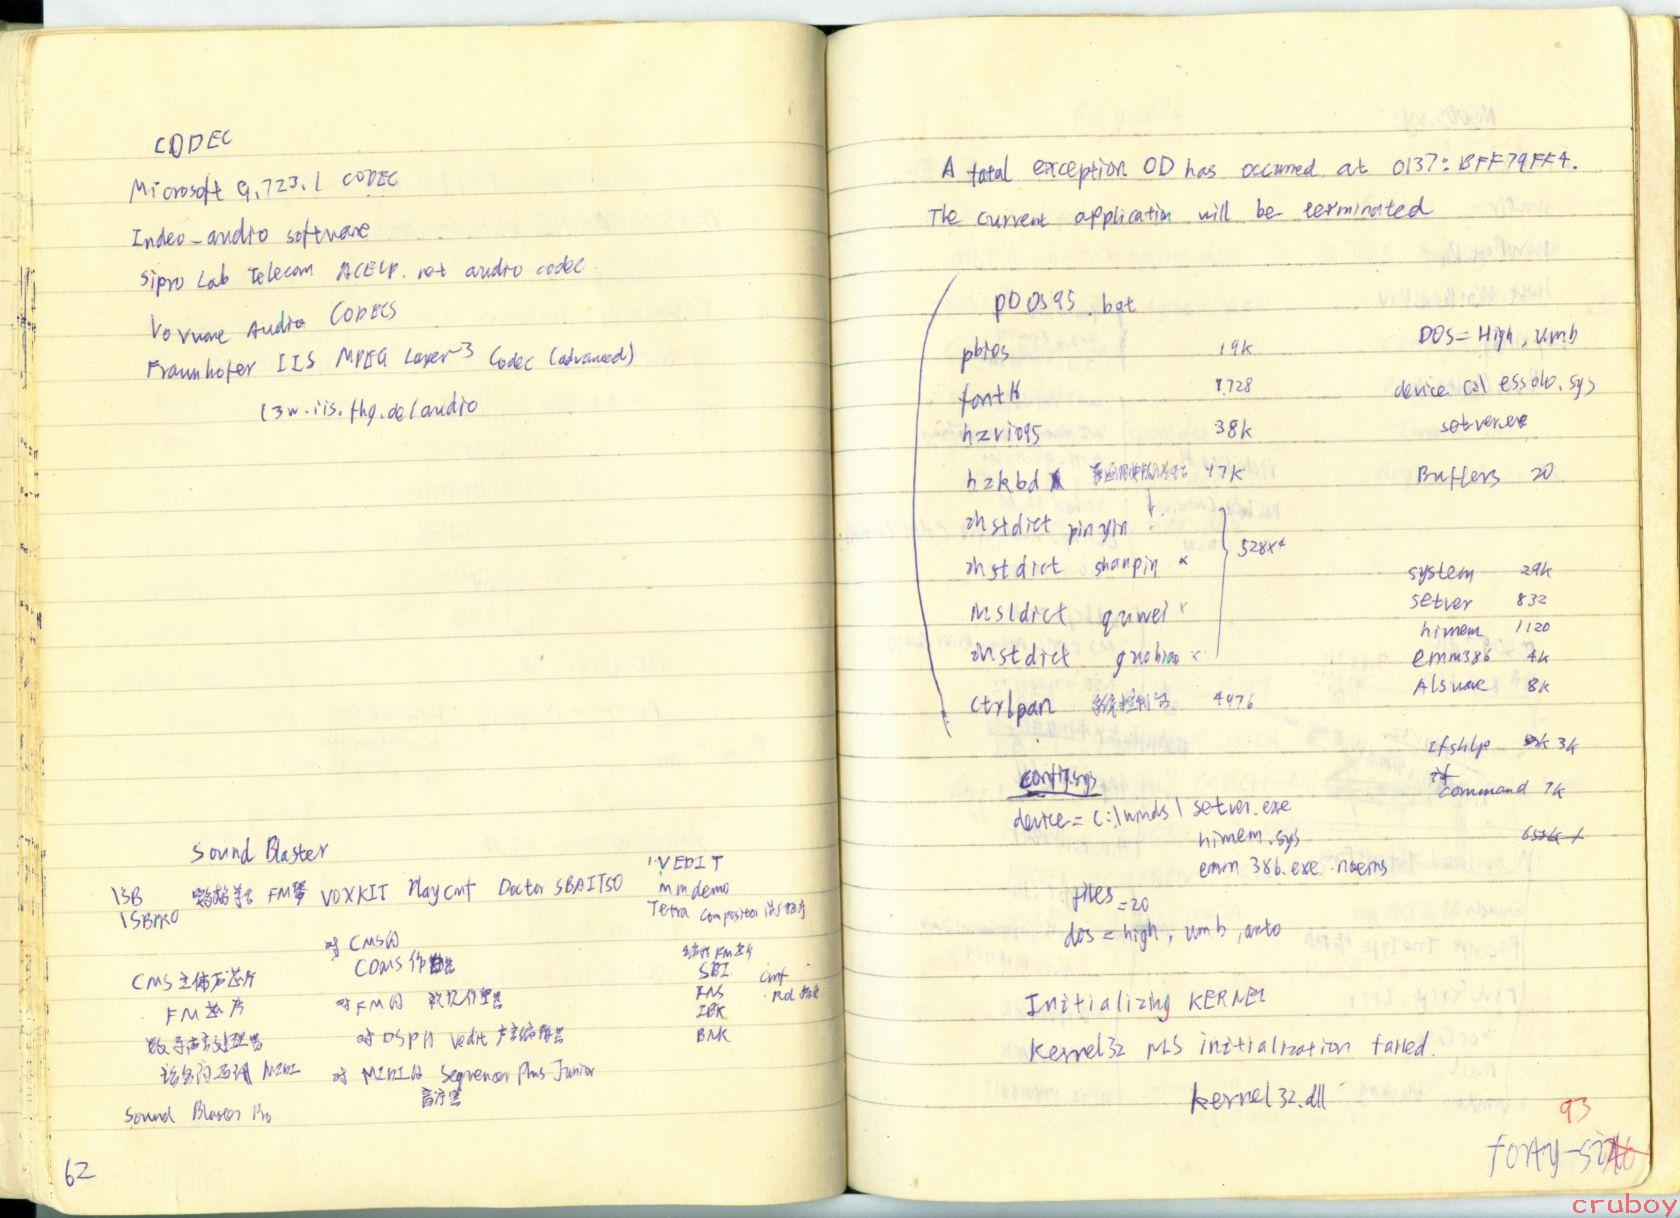 CODEC
Microsoft G.723.1 CODEC
Indeo_audio software
Sipro Lab Telecom ACELP.net audio codec
Voxware Audio CODECS
Fraunhofer IIS MPEG Layer-3 Codec (advanced)
l3w.iis.fhg.de/audio
Sound Blaster
\SB FM VOXKIT Playcmf Doctor SBAITSO
\SBPRO
\VEDIT
mmdemo
Tetra Compositor
对 CMS的
CDMS
CMS 立体声芯片
FM 芯片
对FM的
数字声音处理器
对DSP的 Vedit
MIDI
对 MIDI的 Sequencer Plus Junior
音序器
FM
SBI cmf
RNS .Rol
IBK
BNK
Sound Blaster Pro
62
A fatal exception 0D has occurred at 0137:BFF79FF4.
The current application will be terminated
PDOS95.bat
pbios 19K
font16 1728
hzvio95 38K
hzkbd 17K
mstdict pinyin
mstdict shanpin ×
msldict quwei ×
mstdict guobiao ×
528×4
Ctrlpan 系统控制台 4976
DOS=High, Umb
device Cd essolo.sys
setver.exe
Buffers 20
system 29K
setver 832
himem 1120
emm386 4K
8K
ifshlp 3K
command 7K
config.sys
device=C:\winds\setver.exe
himem.sys
emm386.exe noems
files=20
dos=high, umb, auto
Initializing KERNEL
Kernel32 NLS initialization failed.
kernel32.dll
93
forty-six
cruboy